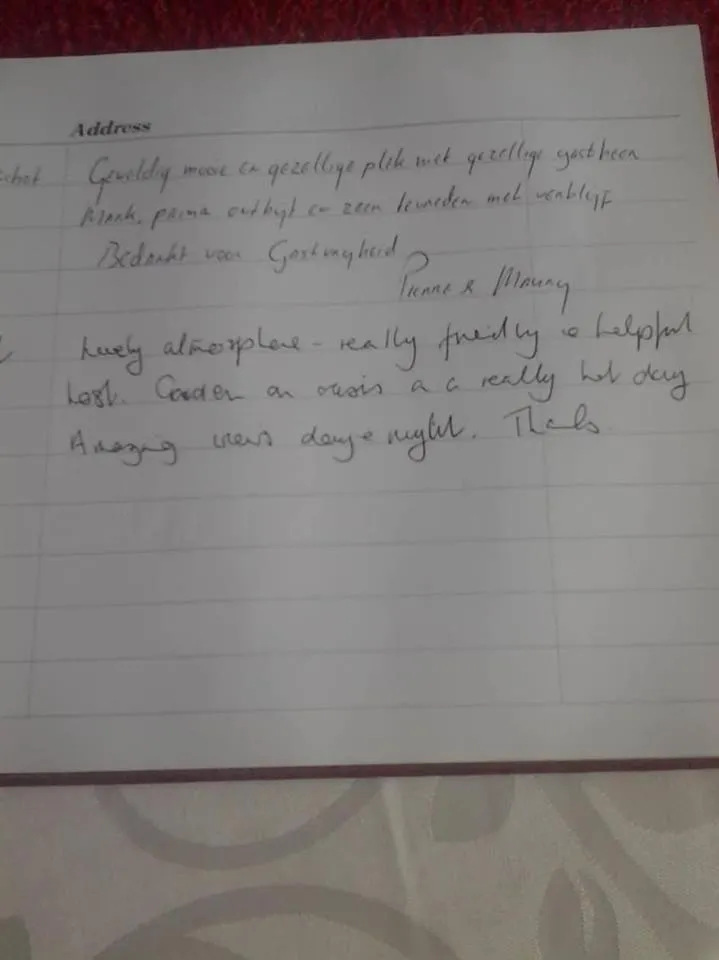 Address
Geweldig mooie en gezellige plek met gezellige gastheer
prima ontbijt en zeer tevreden met verblijf
Bedankt voor Gastvrijheid
&
Lovely atmosphere - really friendly & helpful
host. Garden an oasis on a really hot day
Amazing views day & night. Thanks